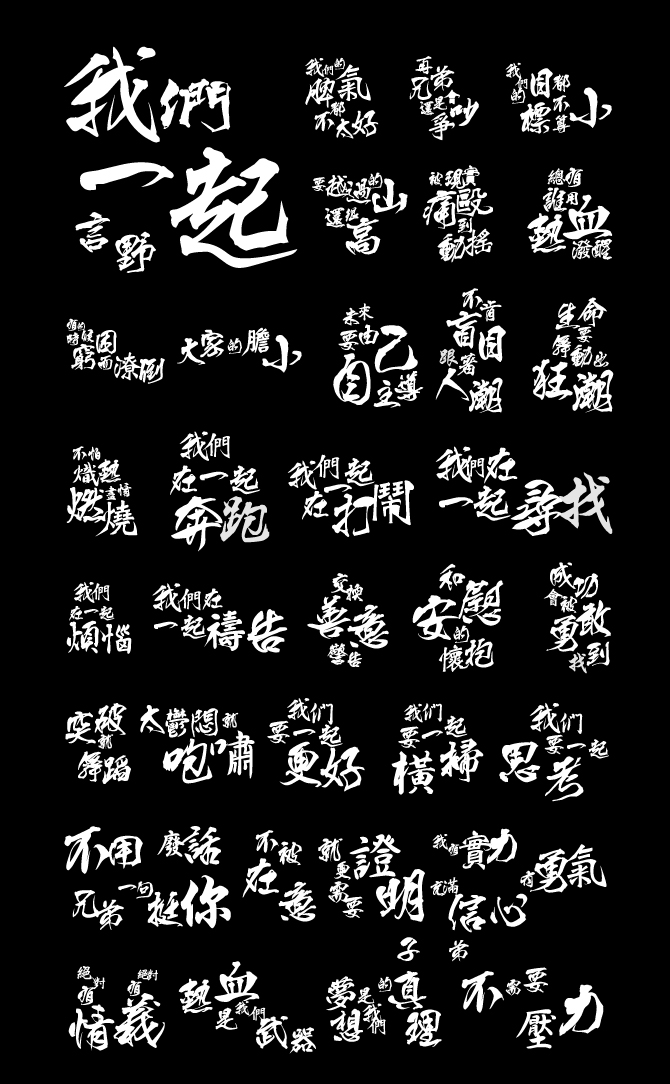 我們
一起
言野
我們的脾氣都不太好
再兄弟還是會爭吵
我們的目標都不算小
要越過的山還挺高
被現實痛毆到動搖
總有誰用熱血潑醒
大家的膽小
未來要由自己主導
不肯盲目跟著人潮
生命要舞動出狂潮
不怕熾熱盡情燃燒
我們在一起奔跑
我們一起在打鬧
我們在一起尋找
我們在一起煩惱
我們在一起禱告
交換善意警告
和安慰的懷抱
成功會被勇敢找到
突破就舞蹈
太鬱悶就咆嘯
我們要一起更好
我們要一起橫掃
我們要一起思考
不用廢話
兄弟一句挺你
不被在意
就更需要證明
我有實力
充滿信心
有勇氣
絕對有情
絕對有義
熱血是我們武器
夢想是我們的真理
子弟不需要壓力